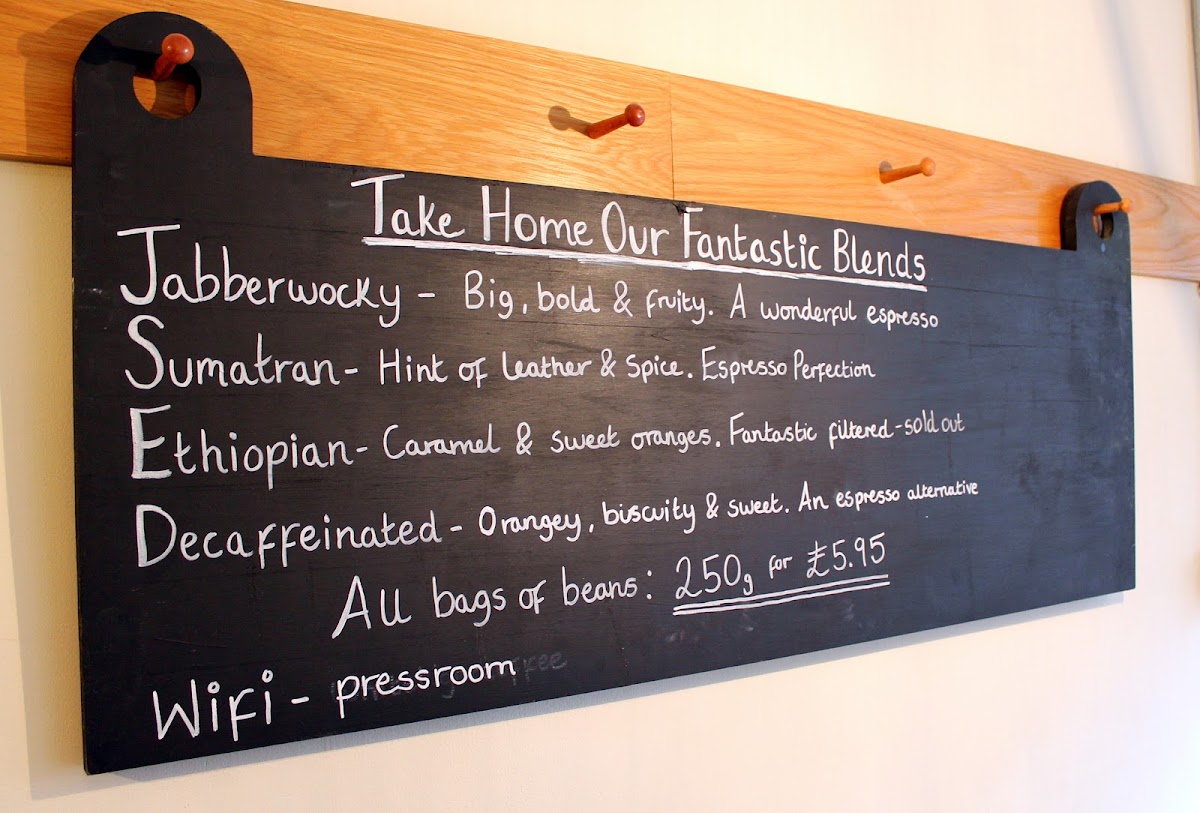 Take Home Our Fantastic Blends
Jabberwocky - Big, bold & fruity. A wonderful espresso
Sumatran - Hint of leather & spice. Espresso Perfection
Ethiopian - Caramel & sweet oranges. Fantastic filtered - sold out
Decaffeinated - Orangey, biscuity & sweet. An espresso alternative
All bags of beans: 250g for £5.95
Wifi - pressroom